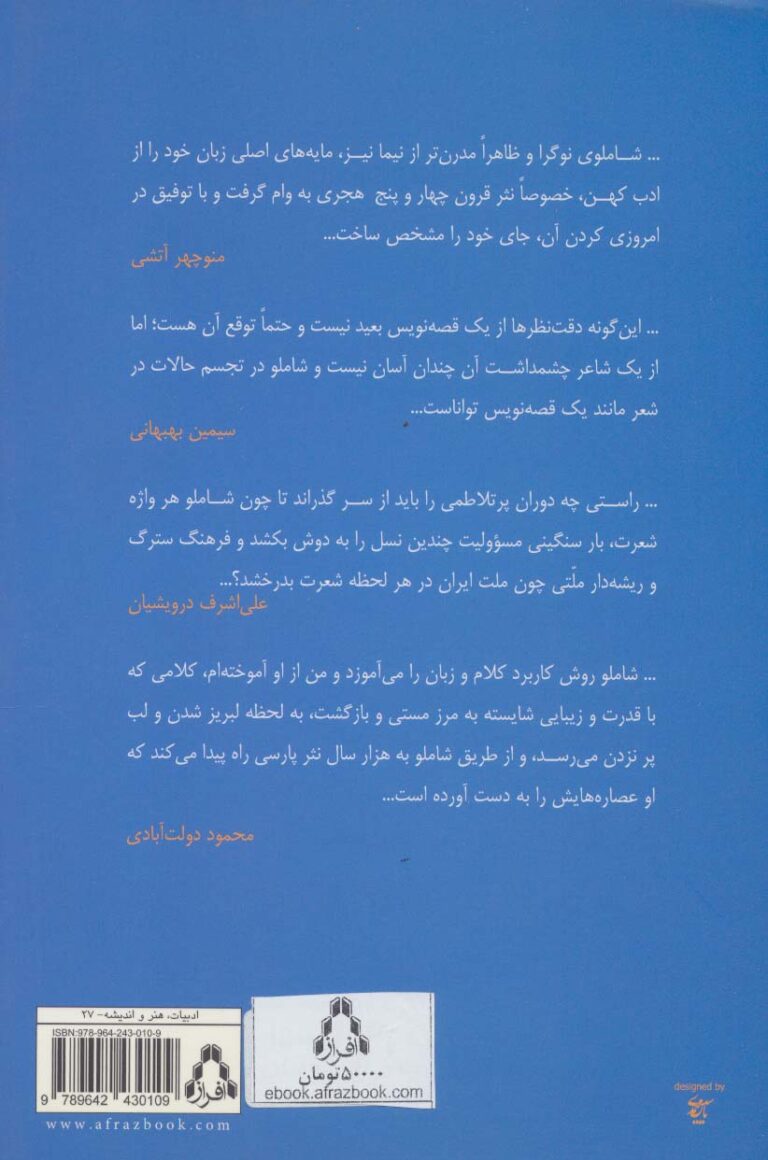 ... شاملوی نوگرا و ظاهراً مدرن‌تر از نیما نیز، مایه‌های اصلی زبان خود را از
ادب کهن، خصوصاً نثر قرون چهار و پنج هجری به وام گرفت و با توفیق در
امروزی کردن آن، جای خود را مشخص ساخت...
منوچهر آتشی
... این‌گونه دقت‌نظرها از یک قصه‌نویس بعید نیست و حتماً توقع آن هست؛ اما
از یک شاعر چشمداشت آن چندان آسان نیست و شاملو در تجسم حالات در
شعر مانند یک قصه‌نویس تواناست...
سیمین بهبهانی
... راستی چه دوران پرتلاطمی را باید از سر گذراند تا چون شاملو هر واژه
شعرت، بار سنگینی مسؤولیت چندین نسل را به دوش بکشد و فرهنگ سترگ
و ریشه‌دار ملّتی چون ملت ایران در هر لحظه شعرت بدرخشد؟...
علی‌اشرف درویشیان
... شاملو روش کاربرد کلام و زبان را می‌آموزد و من از او آموخته‌ام، کلامی که
با قدرت و زیبایی شایسته به مرز مستی و بازگشت، به لحظه لبریز شدن و لب
پر نزدن می‌رسد، و از طریق شاملو به هزار سال نثر پارسی راه پیدا می‌کند که
او عصاره‌هایش را به دست آورده است...
محمود دولت‌آبادی
ادبیات، هنر و اندیشه- ۲۷
ISBN:978-964-243-010-9
افراز
9 789642 430109
www.afrazbook.com
افراز
۵۰۰۰۰ تومان
ebook.afrazbook.com
designed by